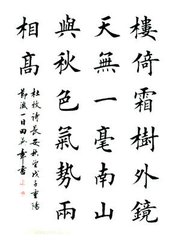 樓倚霜樹外鏡
天無一毫南山
與秋色氣勢兩
相高
杜牧詩長安秋望戊子重陽
一日田英章書